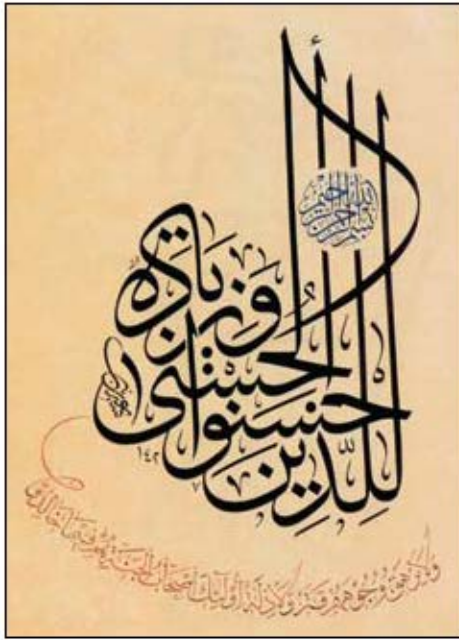 بسم الله الرحمن الرحيم
لِلَّذِينَ أحسنوا الحسنى وزيادة
ولا يرهق وجوههم قتر ولا ذلة أولئك أصحاب الجنة هم فيها خالدون